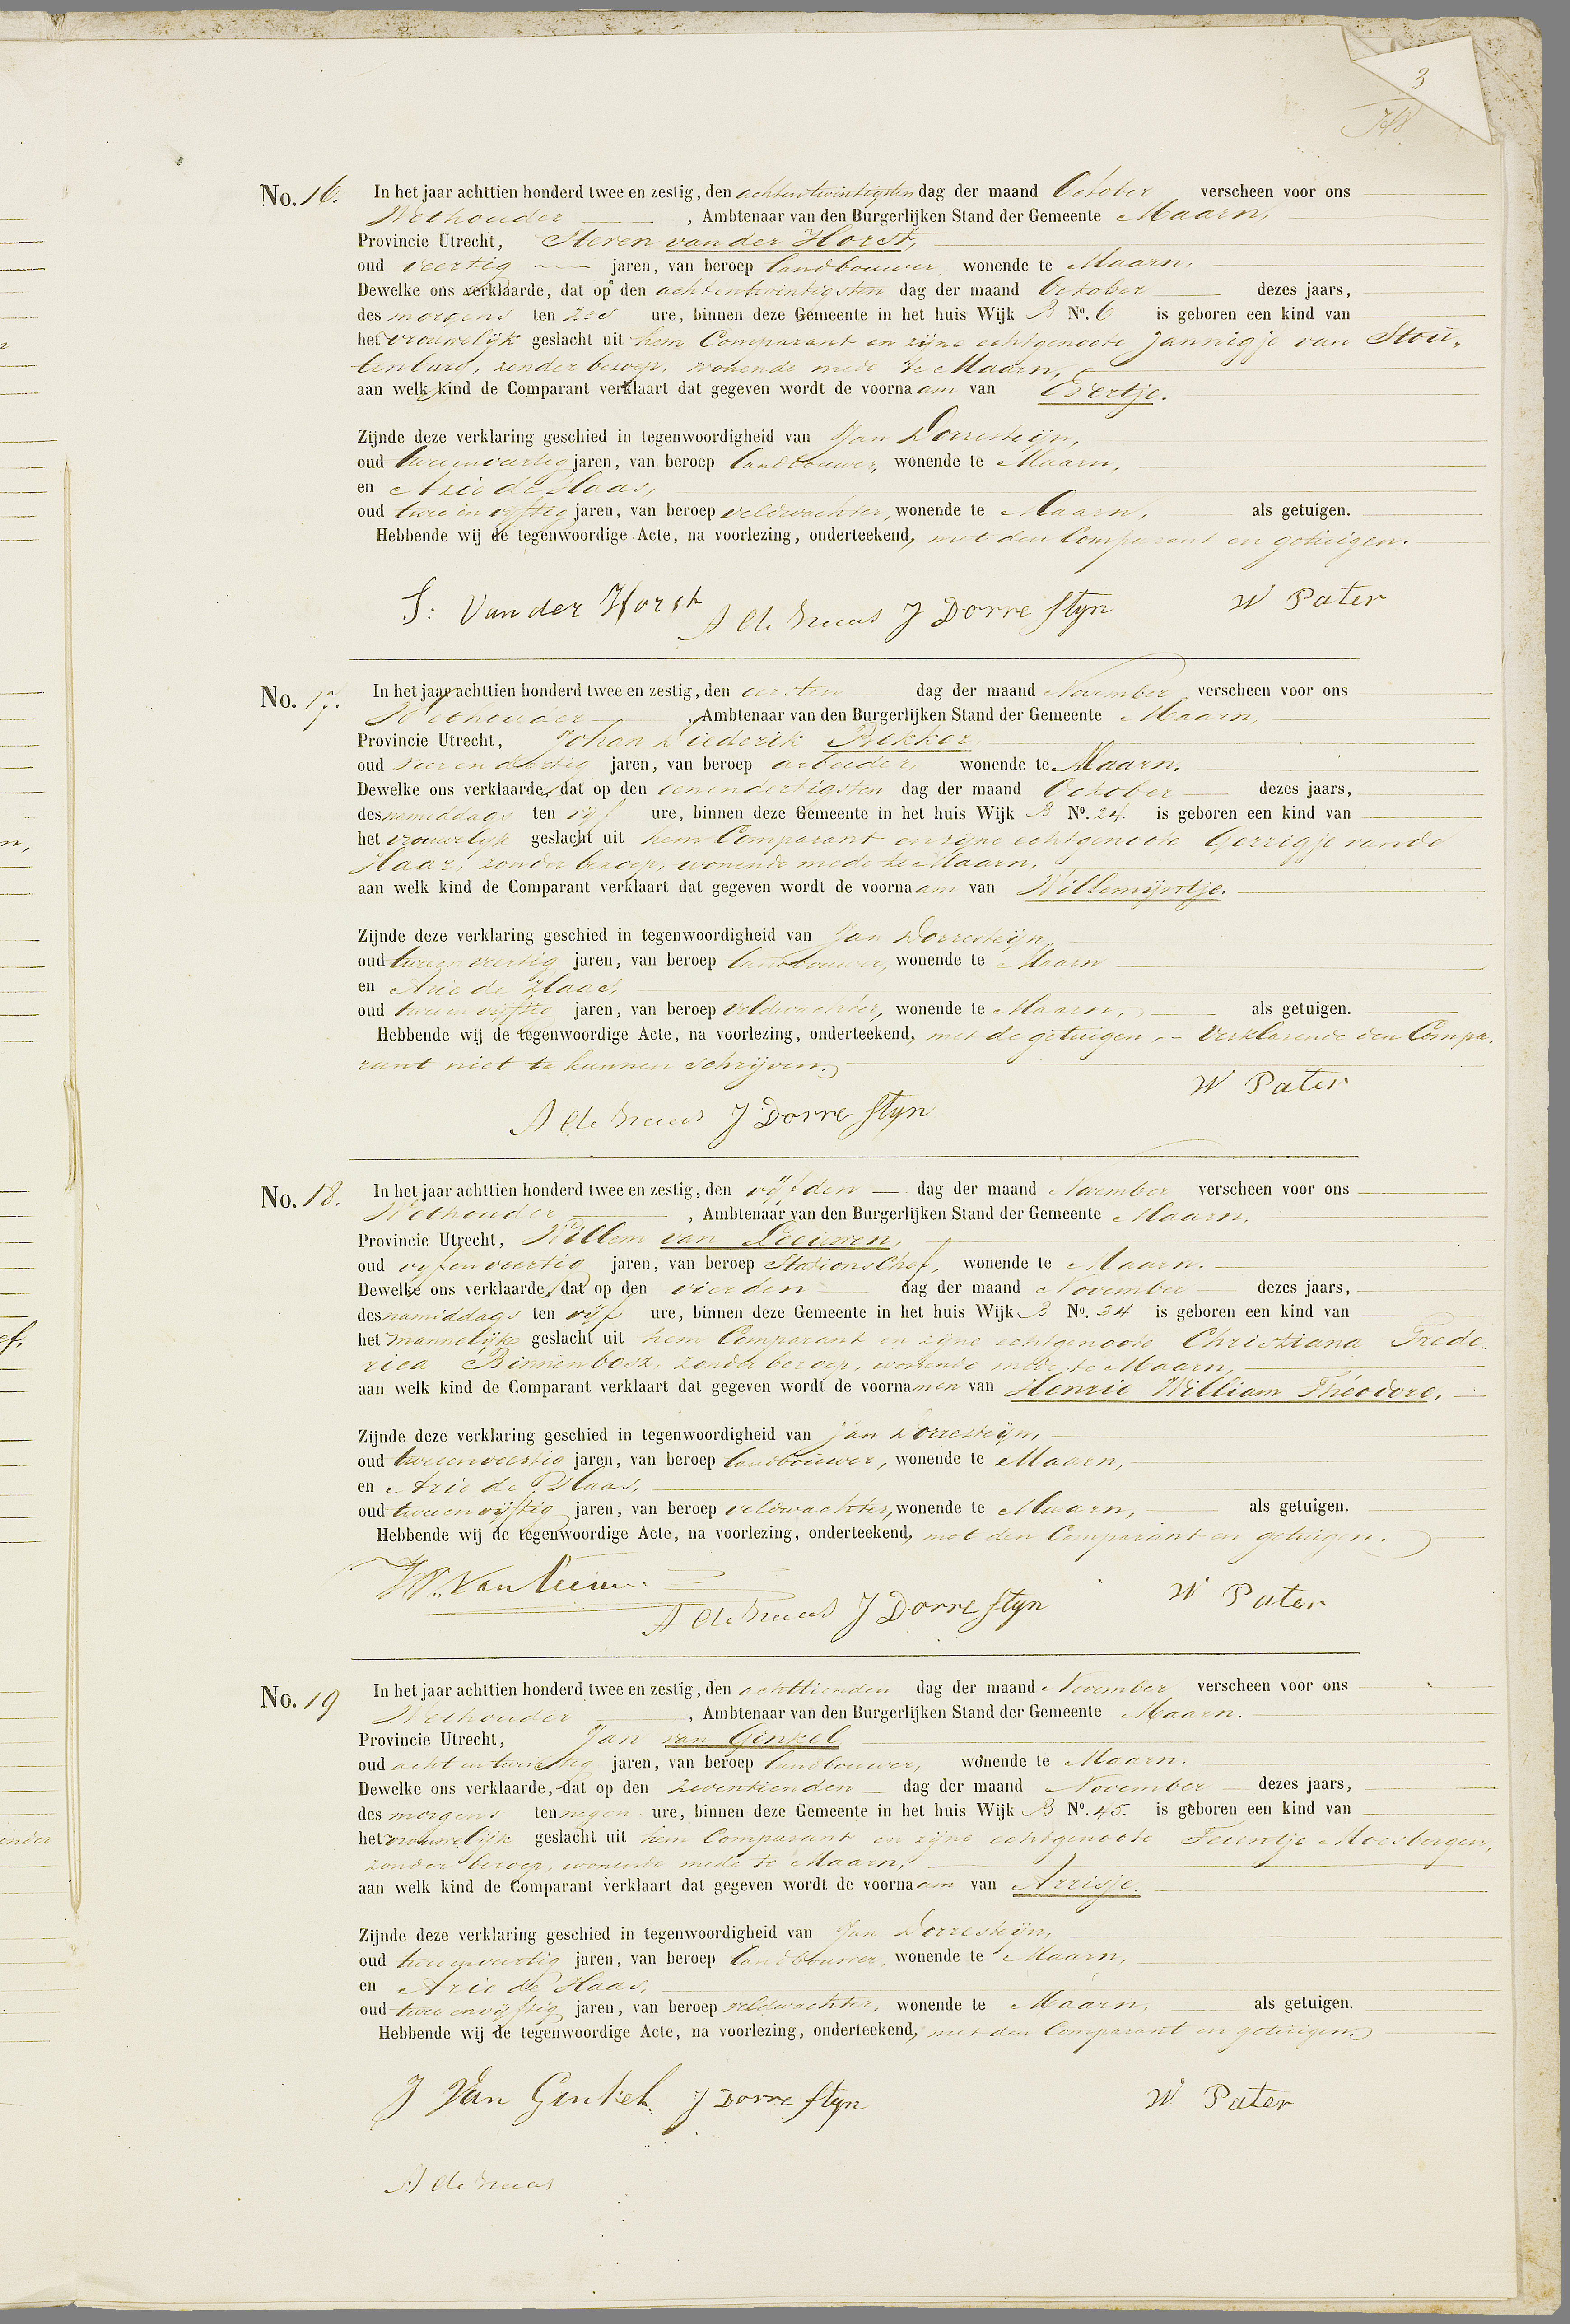 3
No. 16. In het jaar achttien honderd twee en zestig, den achtentwintigsten dag der maand October verscheen voor ons
Wethouder, Ambtenaar van den Burgerlijken Stand der Gemeente Maarn,
Provincie Utrecht, Steven van der Horst,
oud veertig jaren, van beroep landbouwer, wonende te Maarn.
Dewelke ons verklaarde, dat op den achtentwintigsten dag der maand October dezes jaars,
des morgens ten zes ure, binnen deze Gemeente in het huis Wijk B No. 6 is geboren een kind van
het vrouwelijk geslacht uit hem Comparant en zijne echtgenoote Jannigje van Stou-
tenburg, zonder beroep, wonende mede te Maarn,
aan welk kind de Comparant verklaart dat gegeven wordt de voornaam van Evertje.
Zijnde deze verklaring geschied in tegenwoordigheid van Jan Dorresteijn,
oud tweeenveertig jaren, van beroep landbouwer, wonende te Maarn,
en Arie de Haas,
oud twee en vijftig jaren, van beroep veldwachter, wonende te Maarn, als getuigen.
Hebbende wij de tegenwoordige Acte, na voorlezing, onderteekend, met den Comparant en getuigen.
S: Van der Horst A de Haas J Dorrestyn W Pater
No. 17. In het jaar achttien honderd twee en zestig, den eersten dag der maand November verscheen voor ons
Wethouder, Ambtenaar van den Burgerlijken Stand der Gemeente Maarn,
Provincie Utrecht, Johan Diederik Bekker
oud vier en dertig jaren, van beroep arbeider, wonende te Maarn.
Dewelke ons verklaarde, dat op den eenendertigsten dag der maand October dezes jaars,
des namiddags ten vijf ure, binnen deze Gemeente in het huis Wijk B No. 24. is geboren een kind van
het vrouwelijk geslacht uit hem Comparant en zijne echtgenoote Gerrigje van de
Haar, zonder beroep, wonende mede te Maarn,
aan welk kind de Comparant verklaart dat gegeven wordt de voornaam van Willemijntje.
Zijnde deze verklaring geschied in tegenwoordigheid van Jan Dorresteijn,
oud tweeenveertig jaren, van beroep landbouwer, wonende te Maarn
en Arie de Haas,
oud tweeenvijftig jaren, van beroep veldwachter, wonende te Maarn, als getuigen.
Hebbende wij de tegenwoordige Acte, na voorlezing, onderteekend, met de getuigen, - Verklarende den Compa-
rant niet te kunnen schrijven.
W Pater
A de Haas J Dorrestyn
No. 18. In het jaar achttien honderd twee en zestig, den vijfden dag der maand November verscheen voor ons
Wethouder, Ambtenaar van den Burgerlijken Stand der Gemeente Maarn,
Provincie Utrecht, Willem van Leeuwen,
oud vijfenveertig jaren, van beroep StationsChef, wonende te Maarn.
Dewelke ons verklaarde, dat op den vierden dag der maand November dezes jaars,
des namiddags ten vijf ure, binnen deze Gemeente in het huis Wijk B No. 34 is geboren een kind van
het mannelijk geslacht uit hem Comparant en zijne echtgenoote Christiana Frede-
rica Binnenbosz, zonder beroep, wonende mede te Maarn,
aan welk kind de Comparant verklaart dat gegeven wordt de voornamen van Henrie William Théodore.
Zijnde deze verklaring geschied in tegenwoordigheid van Jan Dorresteijn,
oud tweeenveertig jaren, van beroep landbouwer, wonende te Maarn,
en Arie de Haas,
oud tweeenvijftig jaren, van beroep veldwachter, wonende te Maarn, als getuigen.
Hebbende wij de tegenwoordige Acte, na voorlezing, onderteekend, met den Comparant en getuigen.
W. Van Leeuwen A de Haas J Dorrestyn W Pater
No. 19 In het jaar achttien honderd twee en zestig, den achttienden dag der maand November verscheen voor ons
Wethouder, Ambtenaar van den Burgerlijken Stand der Gemeente Maarn.
Provincie Utrecht, Jan van Ginkel
oud acht en twintig jaren, van beroep landbouwer, wonende te Maarn.
Dewelke ons verklaarde, dat op den zeventienden dag der maand November dezes jaars,
des morgens ten negen ure, binnen deze Gemeente in het huis Wijk B No. 45. is geboren een kind van
het vrouwelijk geslacht uit hem Comparant en zijne echtgenoote Teuntje Moesbergen,
zonder beroep, wonende mede te Maarn,
aan welk kind de Comparant verklaart dat gegeven wordt de voornaam van Arrisje.
Zijnde deze verklaring geschied in tegenwoordigheid van Jan Dorresteijn,
oud tweeenveertig jaren, van beroep landbouwer, wonende te Maarn,
en Arie de Haas,
oud twee envijftig jaren, van beroep veldwachter, wonende te Maarn, als getuigen.
Hebbende wij de tegenwoordige Acte, na voorlezing, onderteekend, met den Comparant en getuigen.
J Van Ginkel J Dorrestyn W Pater
A de Haas